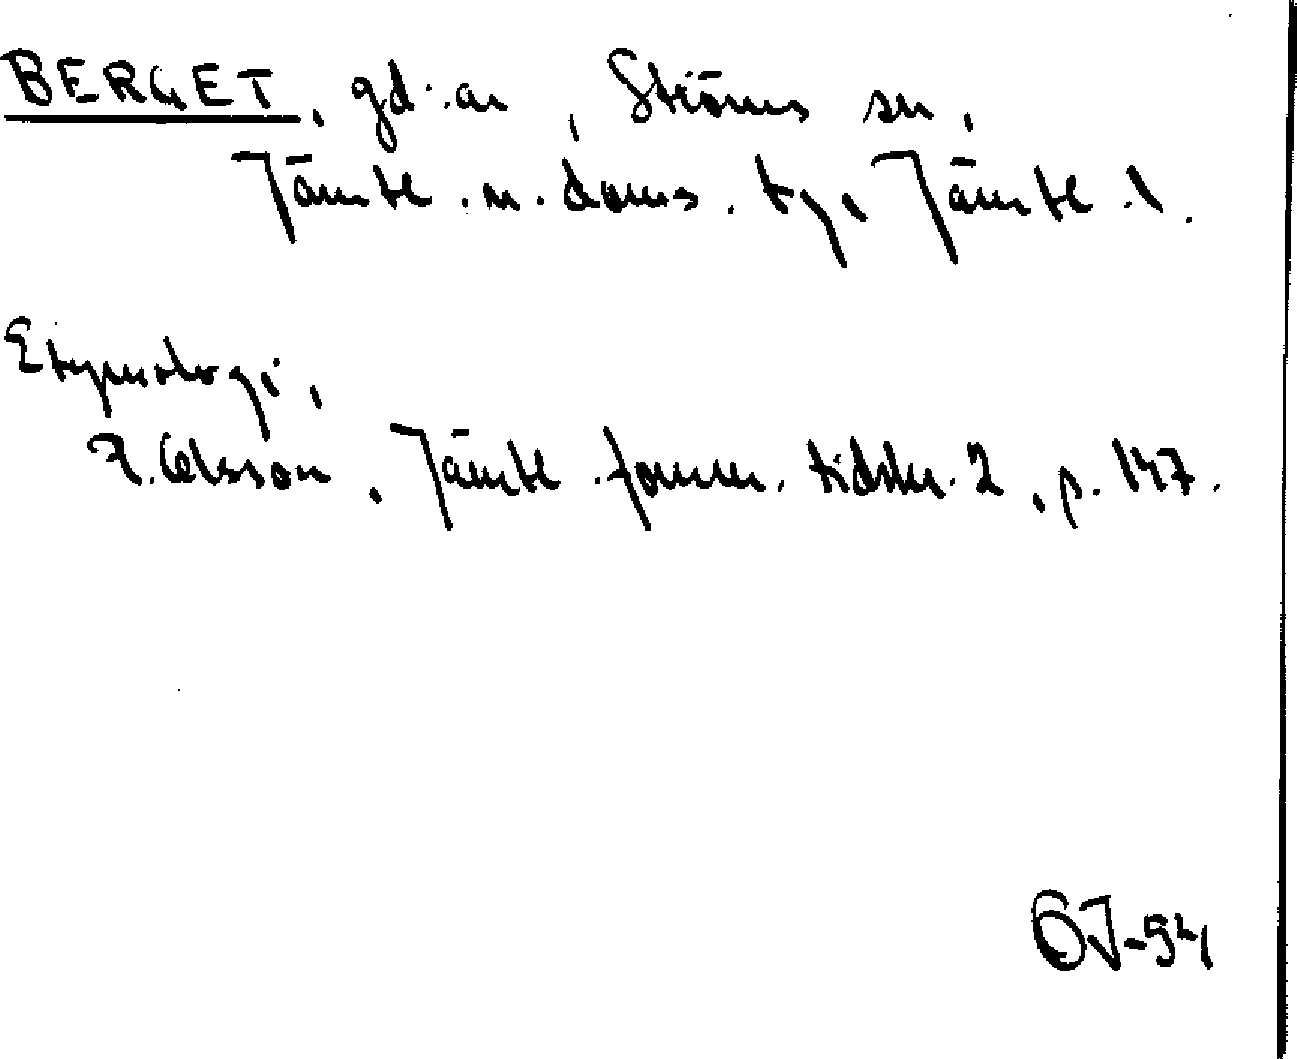 BERGET, gd.ar, Ströms sn,
Jämtl. n. doms. tg, Jämtl. l.
Etymologi,
Olsson, Jämtl. fornm. tidskr. 2, p. 147.
OJ-54